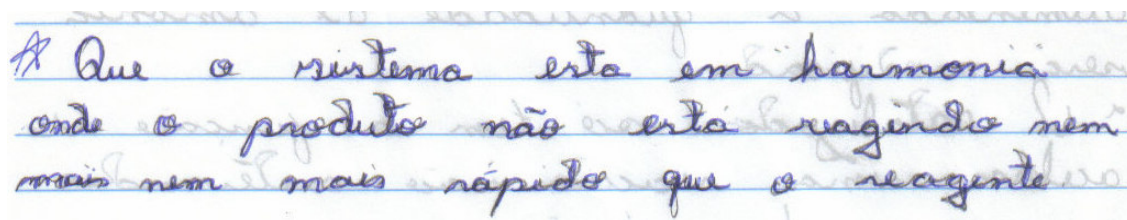 Que o sistema esta em "harmonia"
onde o produto não está reagindo nem
mais nem mais rápido que o reagente